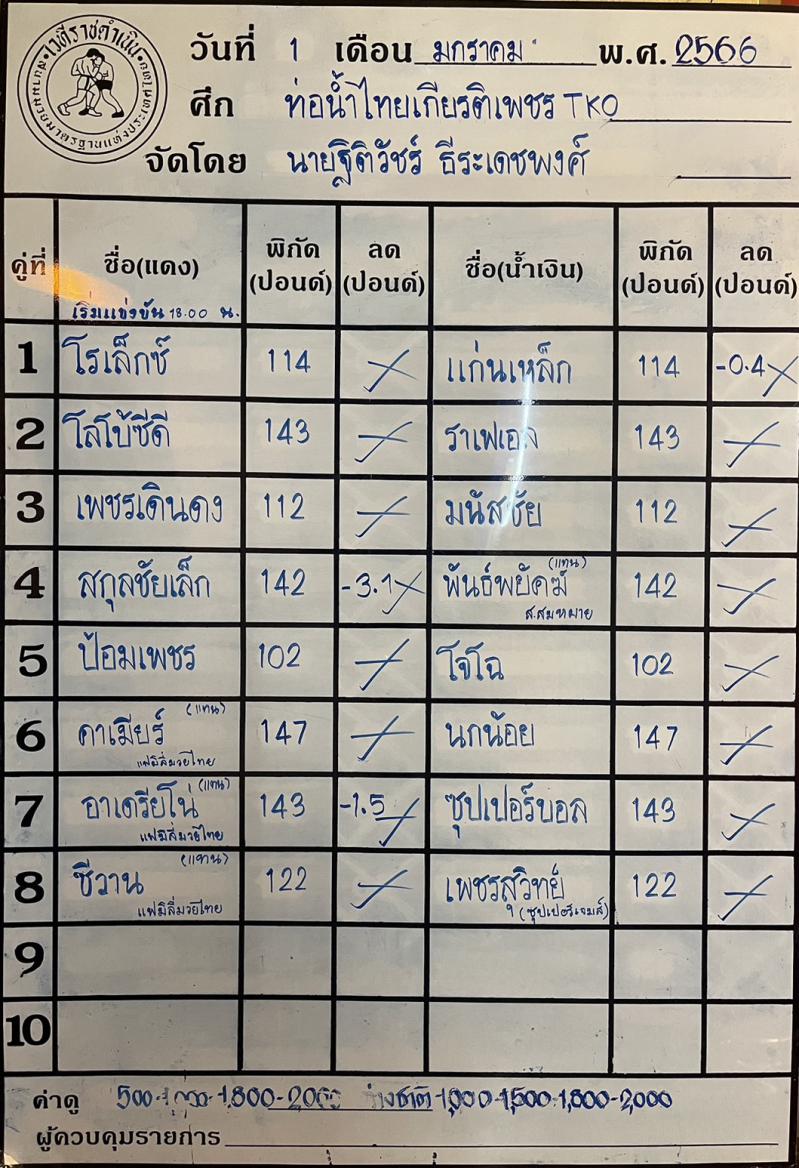 เวทีราชดำเนิน
สนามมวยมาตรฐานแห่งประเทศไทย
วันที่ 1 เดือน มกราคม พ.ศ. 2566
ศึก ท่อน้ำไทยเกียรติเพชร TKO
จัดโดย นายฐิติวัชร์ ธีระเดชพงศ์
คู่ที่ ชื่อ(แดง) พิกัด (ปอนด์) ลด (ปอนด์) ชื่อ(น้ำเงิน) พิกัด (ปอนด์) ลด (ปอนด์)
เริ่มแข่งขัน 18.00 น.
1 โรเล็กซ์ 114 แก่นเหล็ก 114 -0.4
2 โลโบ้ซีดี 143 ราเฟเอล 143
3 เพชรเดินดง 112 มนัสชัย 112
4 สกุลชัยเล็ก 142 -3.1 พันธ์พยัคฆ์ (แทน) 142
ส.สมหมาย
5 ป้อมเพชร 102 โจโฉ 102
6 คาเมียร์ (แทน) 147 นกน้อย 147
แฟมิลี่มวยไทย
7 อาเดรียโน่ (แทน) 143 -1.5 ซุปเปอร์บอล 143
แฟมิลี่มวยไทย
8 ชีวาน (แทน) 122 เพชรสุวิทย์ 122
แฟมิลี่มวยไทย (ซุปเปอร์เจมส์)
9
10
ค่าดู 500- -1,800-2,000 ต่างชาติ 1,000-1,500-1,800-2,000
ผู้ควบคุมรายการ